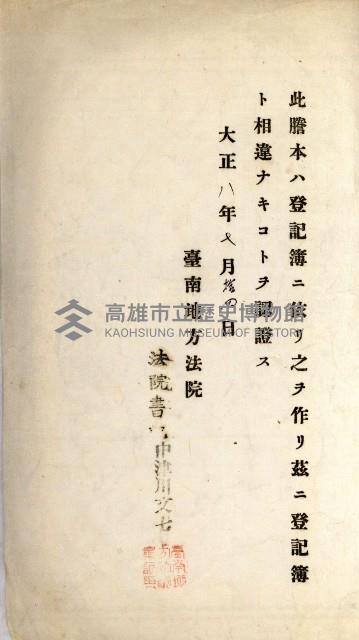 此謄本ハ登記簿ニ依リ之ヲ作リ茲ニ登記簿
ト相違ナキコトヲ認證ス
大正八年 月 日
臺南地方法院
法院書 中津川
高雄市立歷史博物館
KAOHSIUNG MUSEUM OF HISTORY